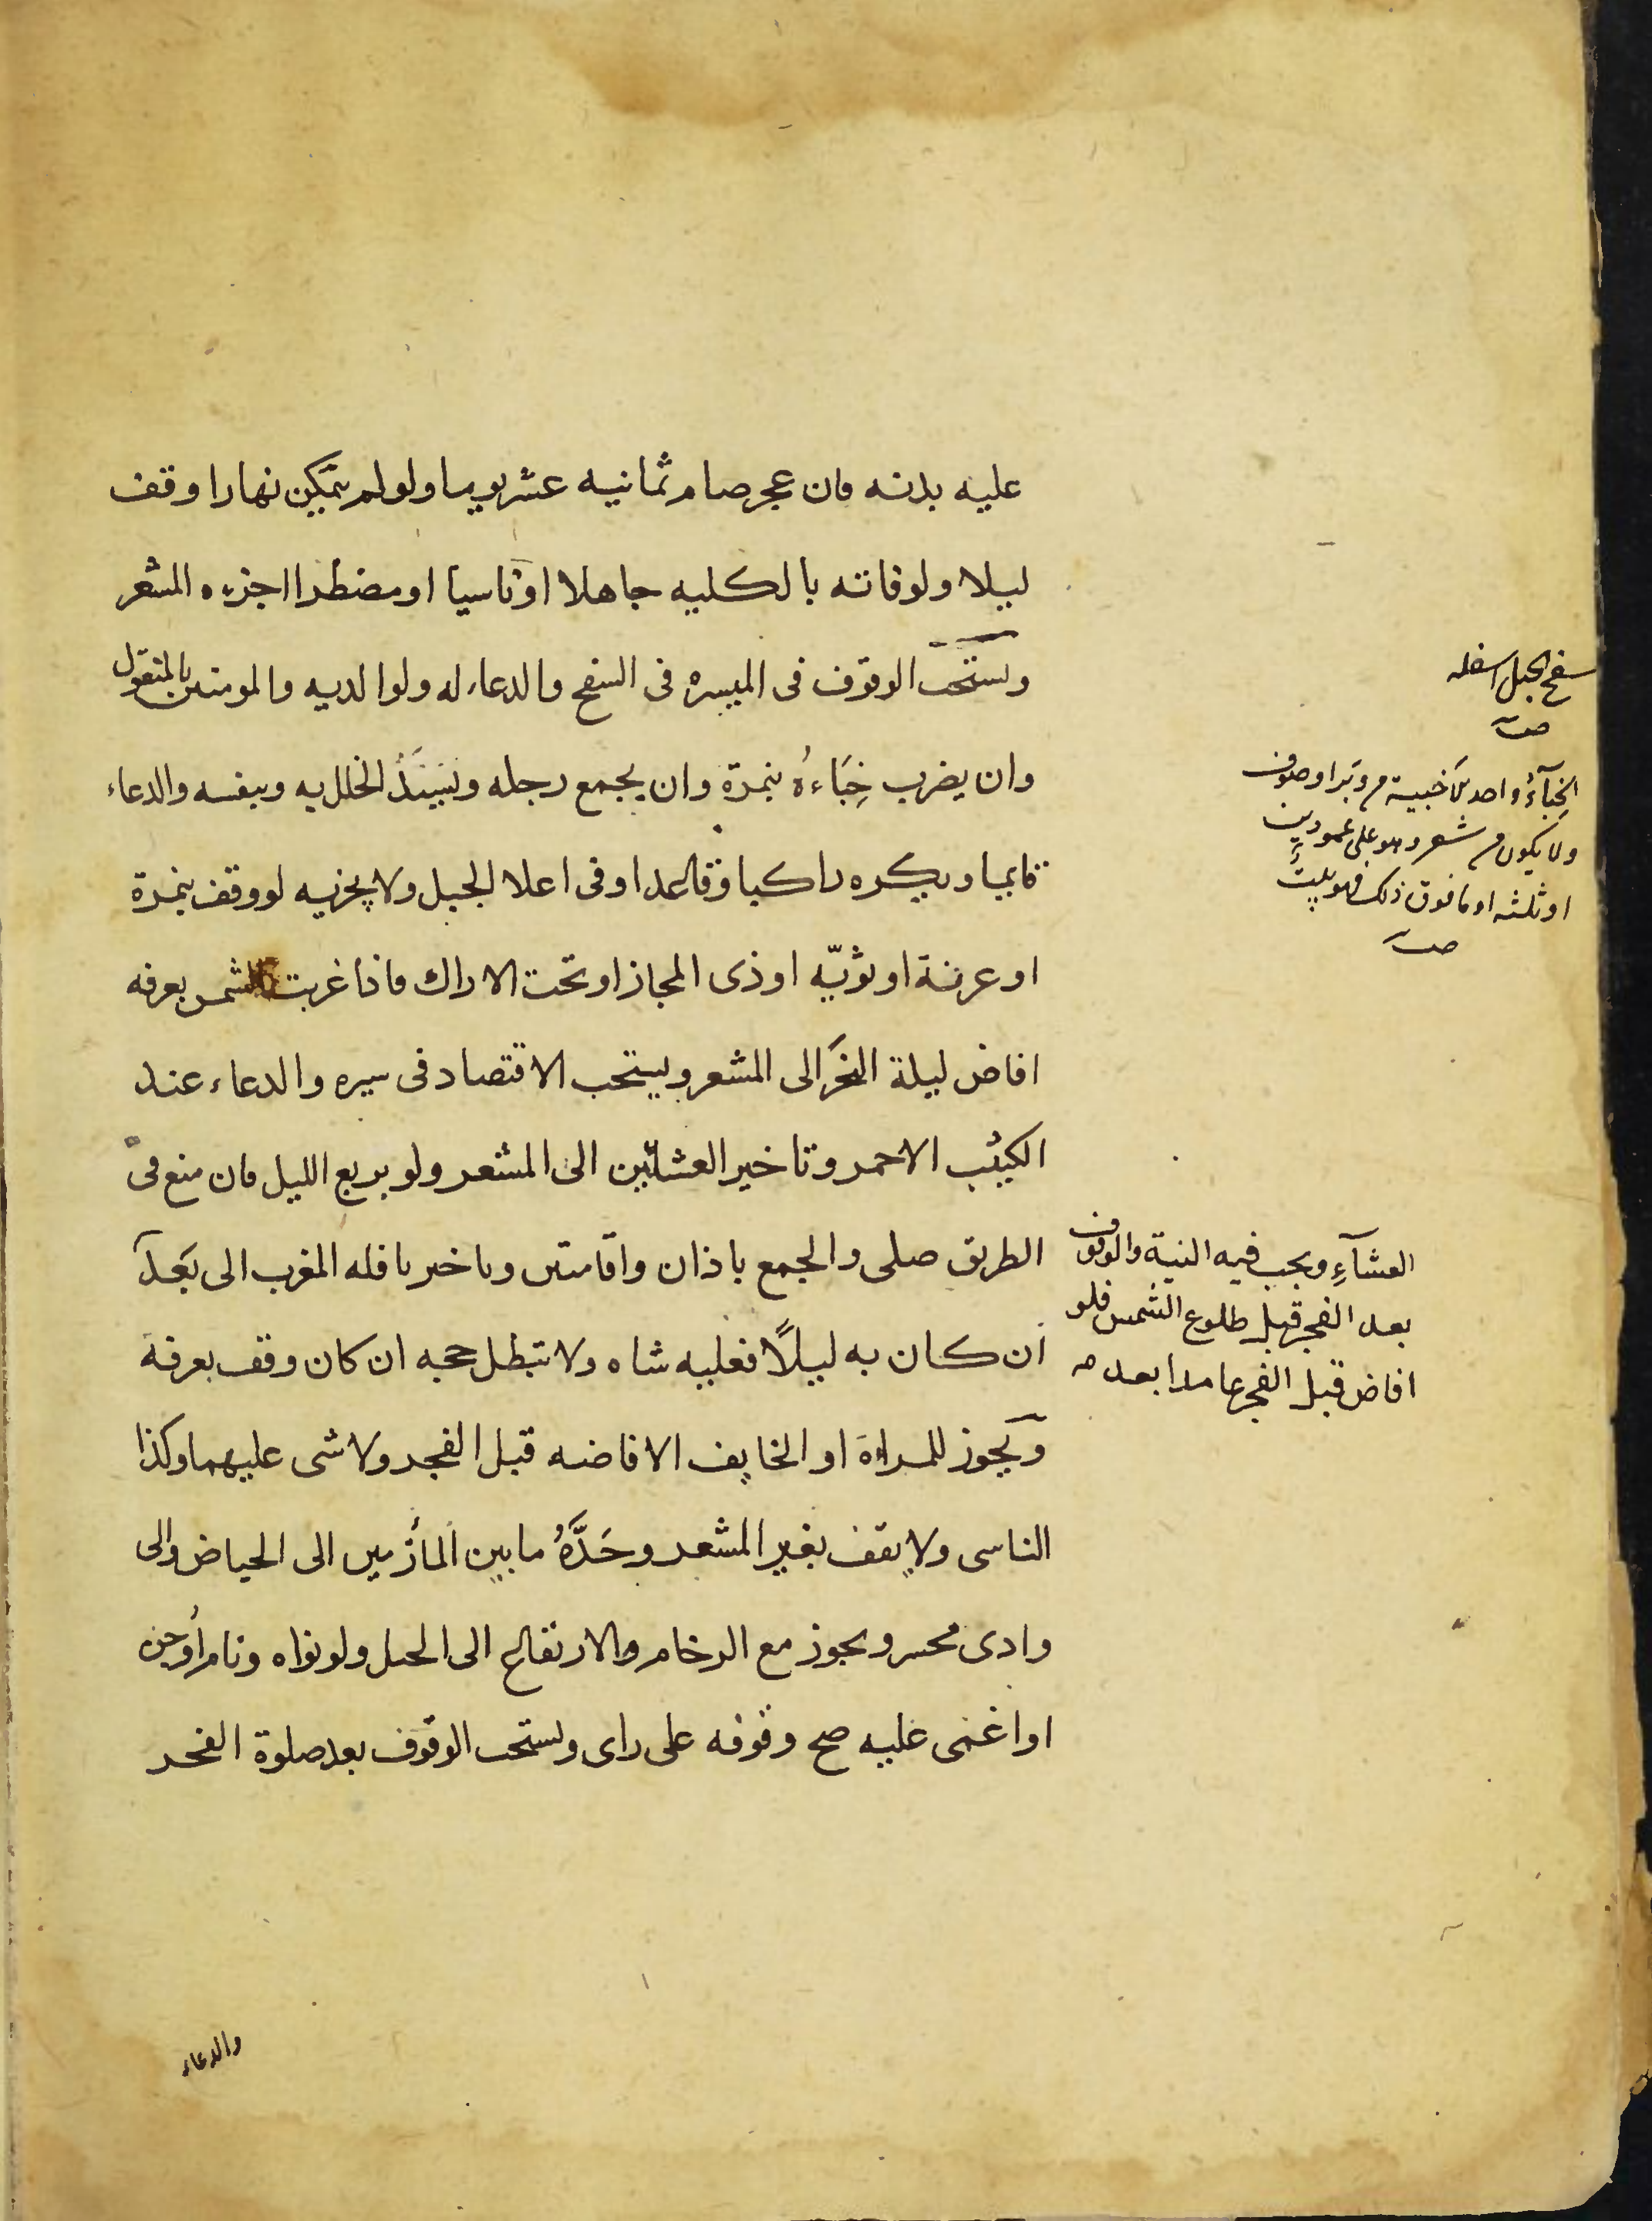 عليه بدنه فان عجز صام ثمانيه عشر يوما ولو لم يتمكن نهارا وقف
ليلا ولو فاته بالكليه جاهلا او ناسيا او مضطرا اجزءه المشعر
ويستحب الوقوف فى الميسره فى السفح والدعاء له ولوالديه والمومنين بالمنقول
وان يضرب خِبَاءهُ بنمرة وان يجمع رحله ويَسُدَّ الخلل به وبنفسه والدعاء
قايما ويكره راكبا وقاعدا وفى اعلا الجبل ولا يجزيه لو وقف بنمرة
او عرنة او ثويّه او ذى المجاز او تحت الاراك فاذا غربت الشمس بعرفه
افاض ليلة النحَر الى المشعر ويستحب الاقتصاد فى سيره والدعاء عند
الكثيب الاحمر وتاخير العشائين الى المشعر ولو بربع الليل فان منع فى
الطريق صلى والجمع باذان واقامتين وتاخير نافله المغرب الى بَعد
ان كان به ليلًا فعليه شاه ولا تبطل حجه ان كان وقف بعرفة
ويجوز للمراة او الخايف الافاضه قبل الفجر ولا شى عليهما وكذا
الناسى ولا يقف بغير المشعر وحَدَّهُ ما بين المأزمين الى الحياض والى
وادى محسر ويجوز مع الزحام والارتفاع الى الجبل ولو نواه ونام أو جن
او اغمى عليه صح وقوفه على راى ويستحب الوقوف بعد صلوة الفجر
والدعاء
سفح الجبل اسفله
صـ
الخِبآءُ واحد الاخبية من وَبَر او صوف
ولا يكون من شعر وهو على عمودين
او ثلثه او ما فوق ذلك فهو بيتٌ
صـ
العشآءِ ويجب فيه النية والوقوف
بعد الفجر قبل طلوع الشمس فلو
افاض قبل الفجر عامدا بعد